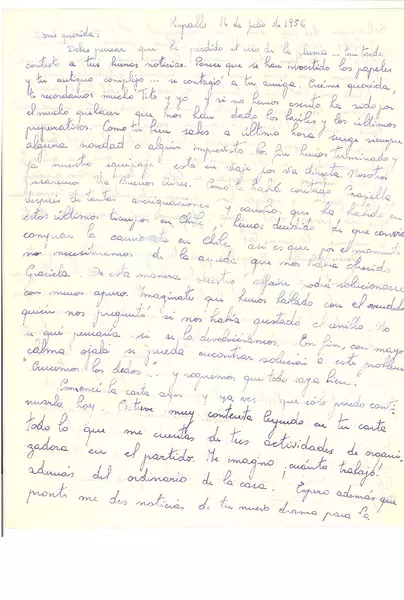 Rapallo 14 de julio de 1956
Doris querida:
Debes pensar que he perdido el uso de la pluma... tan tarde
contesto a tus buenas noticias. Parece que se han invertido los papeles
y tu antiguo complejo... se contagió a tu amiga. Créeme querida,
te recordamos mucho Tito y yo y si no hemos escrito ha sido por
el mucho quehacer que nos han dado los baúles y los últimos
preparativos. Como tu bien sabes a última hora surge siempre
alguna novedad o algún imprevisto. Por fin hemos terminado y
ya nuestro equipaje está en viaje por vía directa. Nosotros
pasaremos via Buenos Aires. Como te habrá contado Graziella
después de tantas averiguaciones y cambios que ha habido en
estos últimos tiempos en Chile, hemos decidido de que conviene
comprar la camioneta en Chile, así es que por el momento
no necesitaremos de la ayuda que nos había ofrecido
Graciela. De esta manera nuestro affaire podrá solucionarse
con menos apuro. Imagínate que hemos hablado con el vendedor
quien nos preguntó si nos había gustado el anillo. No
se qué pensaría si se lo devolviéramos. En fin, con mayor
calma ojalá se pueda encontrar solución a este problema
Crucemos los dedos... y roguemos que todo vaya bien.
Comencé la carta ayer y ya ves que sólo puedo conti
nuarla hoy. Estuve muy contenta leyendo en tu carta
todo lo que me cuentas de tus actividades de organi-
zadora en el partido. Me imagino ¡cuánto trabajo!
además del ordinario de la casa. Espero además que
pronto me des noticias de tu nuevo drama para la